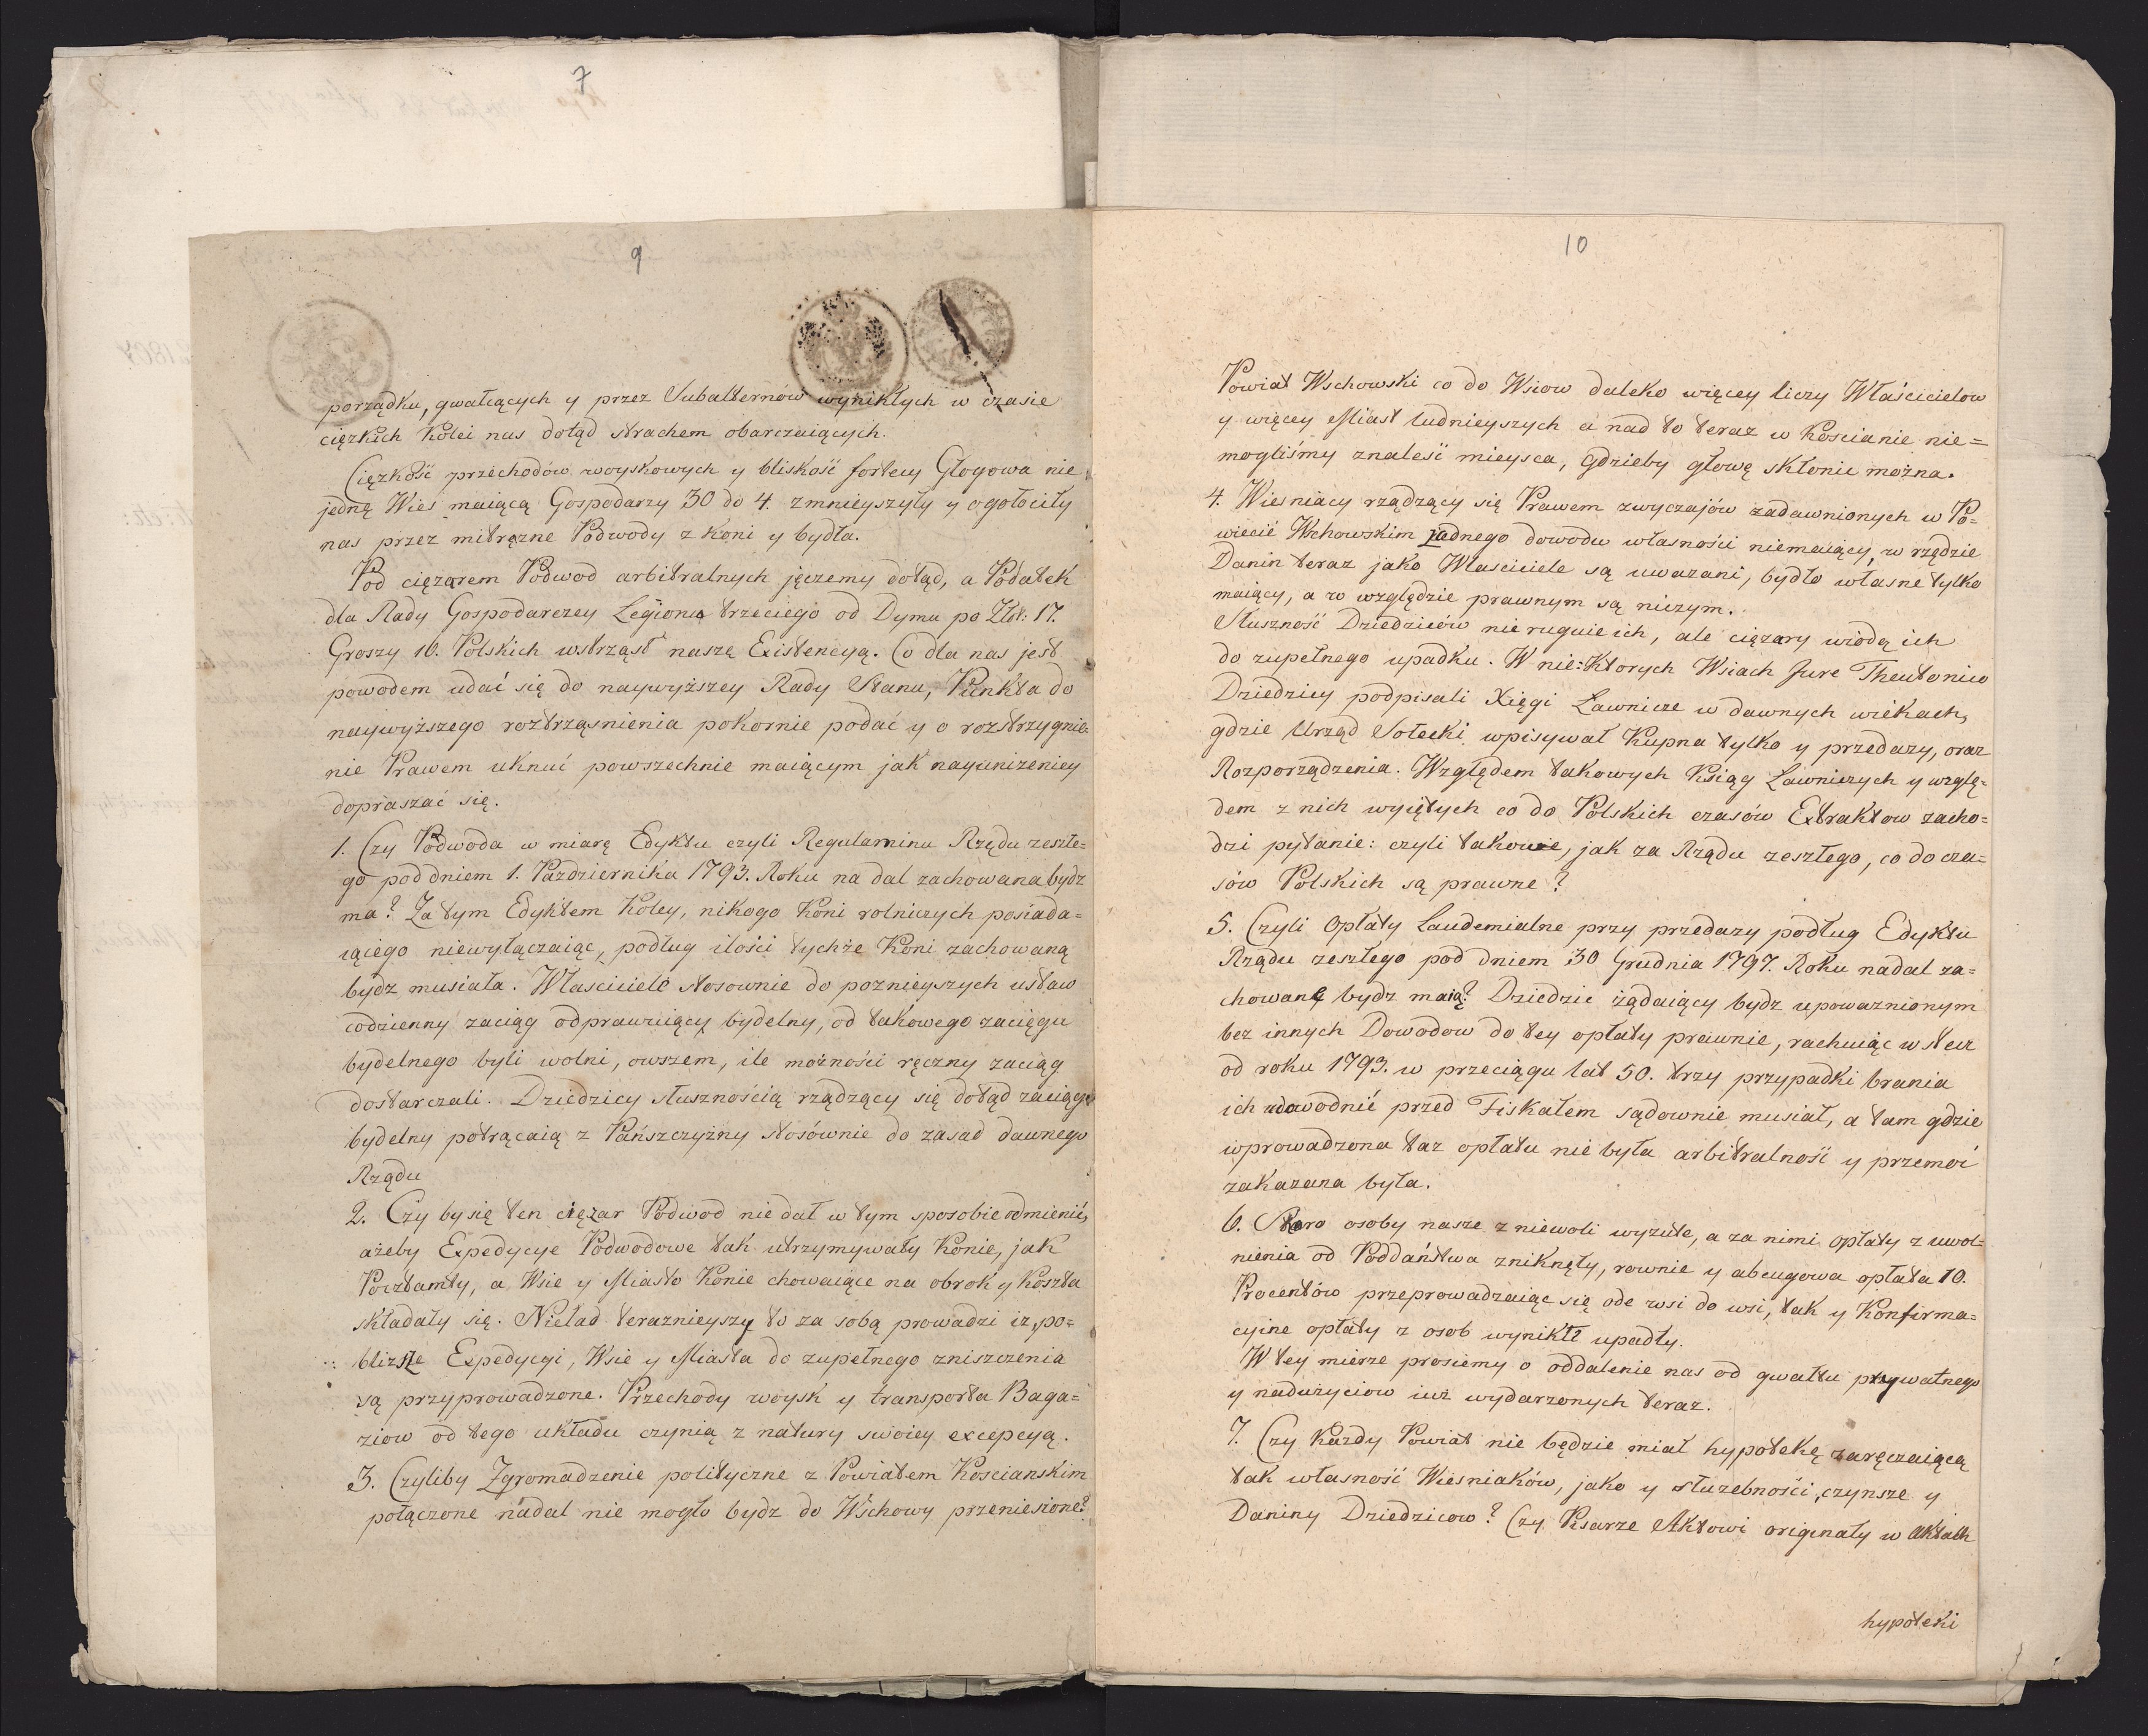 7
9
porządku, gwałcących y przez Subalternów wynikłych w czasie
cięzkich Kolei nas dotąd strachem obarczaiących.
Cięzkość przechodów woyskowych y bliskość fortecy Głogowa nie
jedną Wieś maiącą Gospodarzy 30 do 4. zmnieyszyły y ogołociły
nas przez mitręzne Podwody z Koni y bydła.
Pod cięzarem Podwod arbitralnych jęczemy dotąd, a Podatek
dla Rady Gospodarczey Legionu trzeciego od Dymu po Złot: 17.
Groszy 10. Polskich wstrząsł naszę Existencyą. Co dla nas jest
powodem udać się do naywyższey Rady Stanu, Punkta do
naywyższego roztrząsnienia pokornie podać y o rozstrzygnie-
nie Prawem uknuć powszechnie maiącym jak nayunizeniey
dopraszać się.
1. Czy Podwoda w miarę Edyktu czyli Regulaminu Rządu zeszłe=
go pod dniem 1. Pazdziernika 1793. Roku na dal zachowana bydz
ma? Za tym Edyktem Koley, nikogo Koni rolniczych posiada=
iącego niewyłączaiąc, podług ilości tychże Koni zachowaną
bydz musiała. Włascicielé stosownie do poznieyszych ustaw
codzienny zaciąg odprawuiący bydelny, od takowego zaciągu
bydelnego byli wolni, owszem, ile możności ręczny zaciąg
dostarczali. Dziedzicy słusznością rządzący się dotąd zaciągi
bydelny potrącaią z Pańszczyzny stosównie do zasad dawnego
Rządu
2. Czy by się ten cięzar Podwod nie dał w tym sposobie odmienić,
ażeby Expedycye Podwodowe tak utrzymywały Konie, jak
Pocztamty, a Wsie y Miasto Konie chowaiące na obrok y Koszta
składały się. Nieład teraznieyszy to za sobą prowadzi iz, po=
blizsze Expedycyi, Wsie y Miasta do zupełnego zniszczenia
są przyprowadzone. Przechody woysk y transporta Baga=
ziow od tego układu czynią z natury swoiey excepcyą.
3. Czyliby Zgromadzenie polityczne z Powiatem Koscianskim
połączone nadal nie mogło bydz do Wschowy przeniesione?
10
Powiat Wschowski co do Wsiow daleko więcey liczy Właścicielow
y więcey Miast ludnieyszych a nad to teraz w Koscianie nie=
mogliśmy znaleść mieysca, gdzieby głowę skłonic można.
4. Wiesniacy rządzący się Prawem zwyczajów zadawnionych w Po=
wiecié Wschowskim żadnego dowodu własności niemaiący, w rzędzie
Danin teraz jako Własciciele są uwazani, bydło własne tylko
maiący, a w względzie prawnym są niczym.
Słuszność Dziedziców nie ruguie ich, ale cięzary wiodą ich
do zupełnego upadku. W nie=Ktorych Wsiach Jure Theutonico
Dziedzicy podpisali Xięgi Ławnicze w dawnych wiekach,
gdzie Urząd Sołecki wpisywał Kupna tylko y przedazy, oraz
Rozporządzenia. Względem takowych Ksiąg Ławniczych y wzglę=
dem z nich wyiętych co do Polskich czasów Extraktow zacho=
dzi pytanie: czyli takowe, jak za Rządu zeszłego, co do cza=
sów Polskich są prawne?
5. Czyli Opłaty Laudemialne przy przedazy podług Edyktu
Rządu zeszłego pod dniem 30 Grudnia 1797. Roku nadal za=
chowane bydz maią? Dziedzic żądaiący bydz upowaznionym
bez innych Dowodow do tey opłaty prawnie, rachuiąc wstecz
od roku 1793. w przeciągu lat 50. trzy przypadki brania
ich udowodnić przed Fiskałem sądownie musiał, a tam gdzie
wprowadzona taz opłata nie była arbitralność y przemoc
zakazana była.
6. Skoro osoby nasze z niewoli wyzute, a za nimi opłaty z uwol=
nienia od Poddaństwa zniknęły, rownie y abcugowa opłata 10.
Procentów przeprowadzaiąc się ode wsi do wsi, tak y Konfirma=
cyine opłaty z osob wynikłe upadły.
W tey mierze prosiemy o oddalenie nas od gwałtu prywatnego
y naduzyciow iuż wydarzonych teraz.
7. Czy Kazdy Powiat nie będzie miał hypotekę zaręczaiącą
tak własność Wiesniaków, jako y słuzebności, czynsze y
Daniny Dziedzicow? Czy Pisarze Aktowi originały w aktach
hypoteki